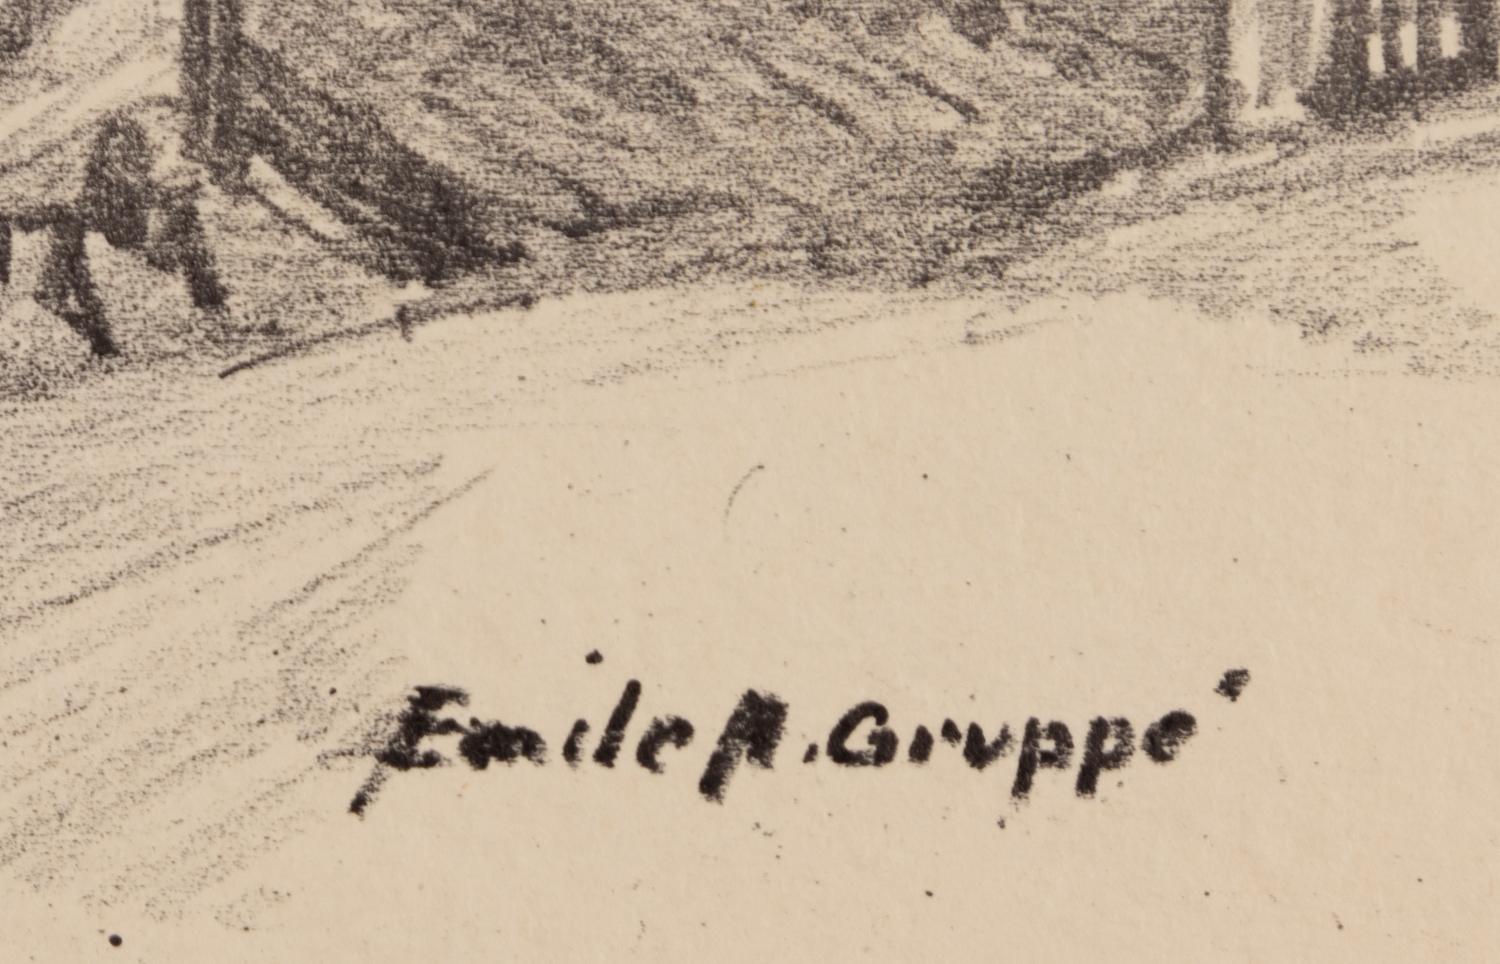 Emile A. Gruppé